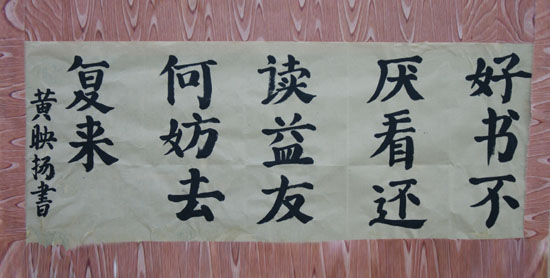 好书不
厌看还
读益友
何妨去
复来
黄映扬書